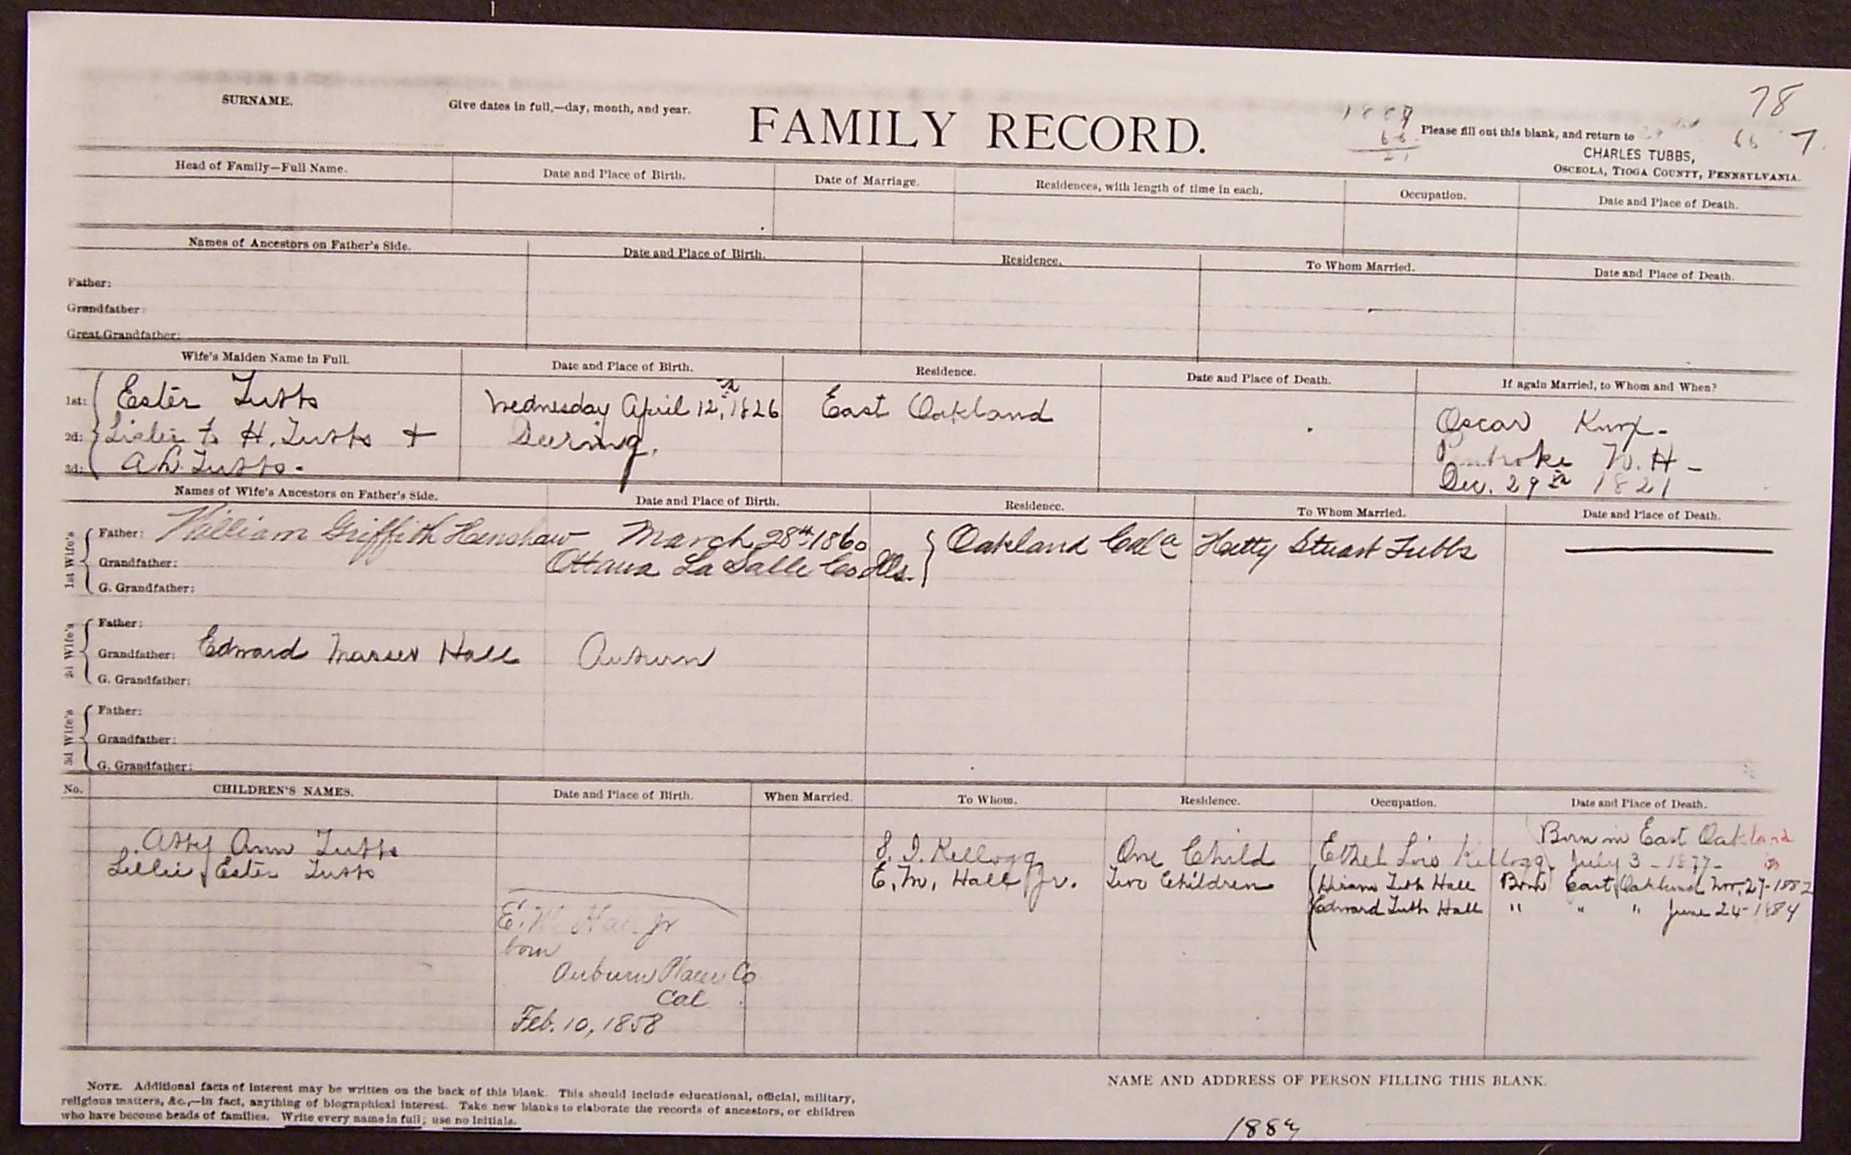 78
SURNAME.
Give dates in full,—day, month, and year.
FAMILY RECORD.
Please fill out this blank, and return to
66 7.
CHARLES TUBBS,
OSCEOLA, TIOGA COUNTY, PENNSYLVANIA.
Head of Family—Full Name. Date and Place of Birth. Date of Marriage. Residences, with length of time in each. Occupation. Date and Place of Death.
Names of Ancestors on Father's Side. Date and Place of Birth. Residence. To Whom Married. Date and Place of Death.
Father:
Grandfather:
Great Grandfather:
Wife's Maiden Name in Full. Date and Place of Birth. Residence. Date and Place of Death. If again Married, to Whom and When?
1st: Ester Tubbs Wednesday April 12, 1826 East Oakland Oscar Knox-
2d: Sister to H. Tubbs + Deering. Pembroke N.H-
3d: A L Tubbs. Dec. 29th 1821
Names of Wife's Ancestors on Father's Side. Date and Place of Birth. Residence. To Whom Married. Date and Place of Death.
1st Wife's
Father: William Griffith Henshaw March 28th 1860 Oakland Cala Hetty Stuart Tubbs
Grandfather: Ottawa La Salle Co Ills.
G. Grandfather:
2d Wife's
Father:
Grandfather: Edward Hall Auburn
G. Grandfather:
3d Wife's
Father:
Grandfather:
G. Grandfather:
No. CHILDREN'S NAMES. Date and Place of Birth. When Married. To Whom. Residence. Occupation. Date and Place of Death.
Born in East Oakland
Abby Ann Tubbs I. Kellogg One Child Ethel Lois Kellogg July 3-1877-
Lillie Ester Tubbs E. M. Hall Jr. Two Children Hiram Tubbs Hall Born East Oakland Nov. 27-1882
Edward Tubbs Hall " " " June 24-1884
E. M Hall Jr
born
Auburn Placer Co
Cal
Feb. 10, 1858
NOTE. Additional facts of interest may be written on the back of this blank. This should include educational, official, military,
religious matters, &c.,—in fact, anything of biographical interest. Take new blanks to elaborate the records of ancestors, or children
who have become heads of families. Write every name in full; use no initials.
NAME AND ADDRESS OF PERSON FILLING THIS BLANK.
1889